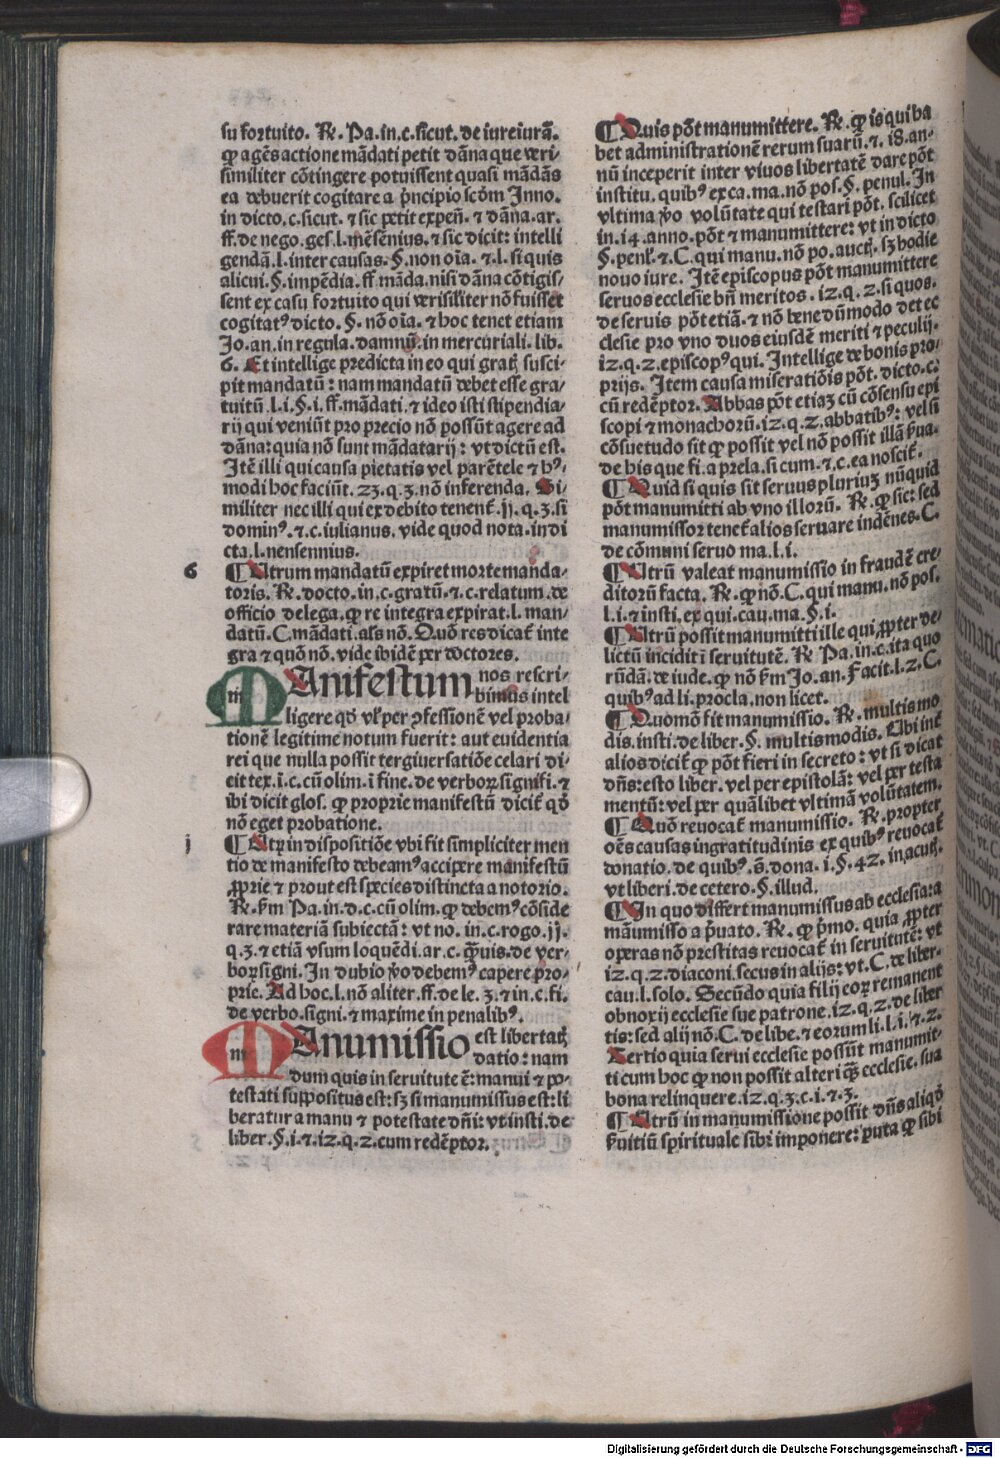 su fortuito. R̃. Pa. in. c. sicut. de iureiurã.
ꝙ agẽs actione mãdati petit dãna que veri-
similiter cõtingere potuissent quasi mãdãs
ea debuerit cogitare a p̃ncipio scḋm Inno.
in dicto. c. sicut. ⁊ sic petit expeñ. ⁊ dãna. ar.
ff. de nego. ges. l. mẽsẽnius. ⁊ sic dicit: intelli
gendã. l. inter causas. §. non oĩa. ⁊ l. si quis
alicui. §. impẽdia. ff mãda. nisi dãna cõtigis-
sent ex casu fortuito qui verisiliter nõ fuisset
cogitatꝰ dicto. §. nõ oĩa. ⁊ hoc tenet etiam
Jo. an. in regula. damnũ. in mercuriali. lib.
6. Et intellige predicta in eo qui gratꝭ susci-
pit mandatũ: nam mandatũ debet esse gra-
tuitũ. l. i. §. i. ff. mãdati. ⁊ ideo isti stipendia-
rij qui veniũt pro precio nõ possũt agere ad
dãna: quia nõ sunt mãdatarij: vt dictũ est.
Itẽ illi qui causa pietatis vel parẽtele ⁊ hꝰ-
modi hoc faciũt. 23. q. 3. nõ inferenda. Si-
militer nec illi qui ex debito tenent̃. ij. q. 3. si
dominꝰ. ⁊. c. iulianus. vide quod nota. in di
cta. l. nensennius.
6 ¶ Utrum mandatũ expiret morte manda-
toris. R̃. docto. in. c. gratũ. ⁊. c. relatum. de
officio delega. ꝙ re integra expirat. l. man-
datũ. C. mãdati. al's nõ. Quõ res dicat̃ inte
gra ⁊ quõ nõ. vide ibidẽ per doctores.
MAnifestum nos rescri-
bimus intel
ligere qḋ vl' per ꝯfessionẽ vel proba-
tionẽ legitime notum fuerit: aut euidentia
rei que nulla possit tergiuersatiõe celari di-
cit tex. ĩ. c. cũ olim. ĩ fine. de verboꝝ signifi. ⁊
ibi dicit glos. ꝙ proprie manifestũ dicit̃ qḋ
nõ eget probatione.
j ¶ Utꝝ in dispositiõe vbi fit simpliciter men
tio de manifesto debeamꝰ accipere manifestũ
ꝓprie ⁊ prout est species distincta a notorio.
R̃. ẜm Pa. in. d. c. cũ olim. ꝙ debemꝰ cõside
rare materiã subiectã: vt no. in. c. rogo. ij.
q. 3. ⁊ etiã vsum loquẽdi. ar. c. q̃uis. de ver-
boꝝ signi. In dubio ṽo debemꝰ capere pro-
prie. Ad hoc. l. nõ aliter. ff. de le. 3. ⁊ in. c. fi.
de verbo. signi. ⁊ maxime in penalibꝰ.
MAnumissio est libertatꝭ
datio: nam
dum quis in seruitute ẽ: manui ⁊ po-
testati suppositus est: sꝫ si manumissus est: li
beratur a manu ⁊ potestate dñi: vt insti. de
liber. §. i. ⁊. 12. q. 2. cum redẽptor.
¶ Quis põt manumittere. R̃. ꝙ is qui ha
bet administrationẽ rerum suarũ. ⁊. 18. an-
nũ inceperit inter viuos libertatẽ dare põt
institu. quibꝰ ex ca. ma. nõ pos. §. penul. In
vltima ṽo volũtate qui testari põt. scilicet
in. 14. anno. põt ⁊ manumittere: vt in dicto
§. penl'. ⁊. C. qui manu. nõ po. auctꝭ. sꝫ hodie
nouo iure. Itẽ episcopus põt manumittere
seruos ecclesie bñ meritos. 12. q. 2. si quos.
de seruis põt etiã. ⁊ nõ bene dũmodo det ec
clesie pro vno duos eiusdẽ meriti ⁊ peculij.
12. q. 2. episcopꝰ qui. Intellige de bonis pro-
prijs. Item causa miseratiõis põt. dicto. c.
cũ redẽptor. Abbas põt etiaꝫ cũ cõsensu epi
scopi ⁊ monachorũ. 12. q. 2. abbatibꝰ: vel sĩ
cõsuetudo sit ꝙ possit vel nõ possit illã ẜua.
de his que fi. a prela. si cum. ⁊. c. ea noscit̃.
¶ Quid si quis sit seruus pluriuꝫ nũquid
põt manumitti ab vno illorũ. R̃. ꝙ sic: sed
manumissor tenet̃ alios seruare indẽnes. C.
de cõmuni seruo ma. l. i.
¶ Utrũ valeat manumissio in fraudẽ cre-
ditorũ facta. R̃. ꝙ nõ. C. qui manu. nõ pos.
l. i. ⁊ insti. ex qui. cau. ma. §. i.
¶ Utrũ possit manumitti ille qui ꝓpter de-
lictũ incidit ĩ seruitutẽ. R̃. Pa. in. c. ita quo
rũdã. de iude. ꝙ nõ ẜm Jo. an. Facit. l. 2. C.
quibꝰ ad li. procla. non licet.
¶ Quomõ fit manumissio. R̃. multis mo
dis. insti. de liber. §. multis modis. Ubi int̃
alios dicit̃ ꝙ põt fieri in secreto: vt si dicat
dñs: esto liber. vel per epistolã: vel per testa
mentũ: vel per quãlibet vltimã volũtatem.
¶ Quõ reuocat̃ manumissio. R̃. propter
oẽs causas ingratitudinis ex quibꝰ reuocat̃
donatio. de quibꝰ. s̃. dona. i. §. 42. in auctꝭ.
vt liberi. de cetero. §. illud.
¶ In quo differt manumissus ab ecclesia: a
mãumisso a p̃uato. R̃. ꝙ p̃mo. quia ꝓpter
operas nõ prestitas reuocat̃ in seruitutẽ: vt
12. q. 2. diaconi. secus in alijs: vt. C. de liber-
cau. l. solo. Secũdo quia filij eoꝝ remanent
obnoxij ecclesie sue patrone. 12. q. 2. de liber
tis: sed alij nõ. C. de libe. ⁊ eorum li. l. i. ⁊. 2.
Tertio quia serui ecclesie possũt manumit-
ti cum hoc ꝙ non possit alteri q̃ꝫ ecclesie. sua
bona relinquere. 12. q. 3. c. i. ⁊. 3.
¶ Utrũ in manumissione possit dñs aliqḋ
ẜuitiũ spirituale sibi imponere: puta ꝙ sibi
Digitalisierung gefördert durch die Deutsche Forschungsgemeinschaft - DFG